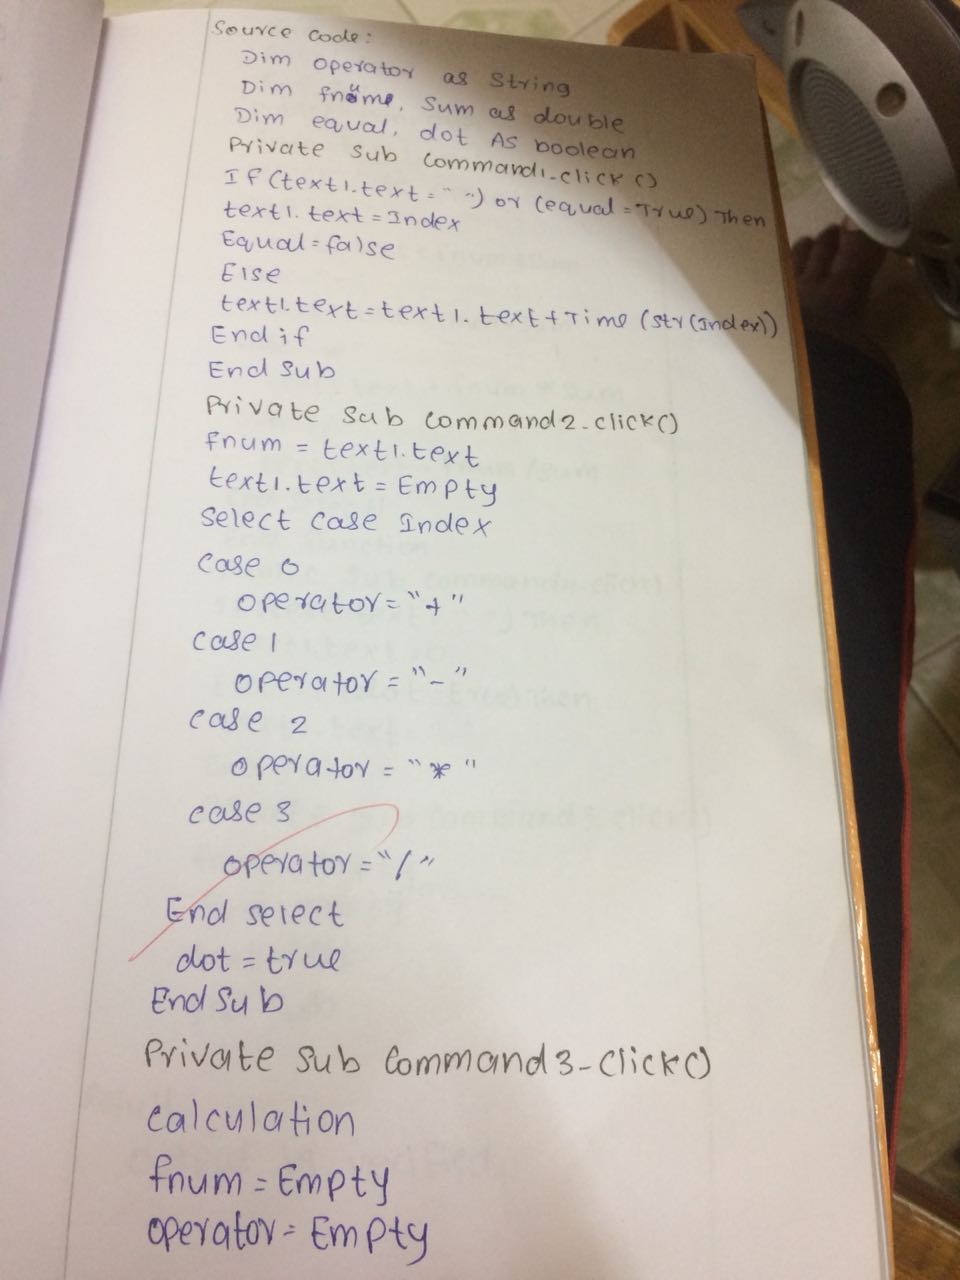 Source Code:
Dim operator as String
Dim fnume, Sum as double
Dim equal, dot As boolean
Private Sub Command1-click()
If (text1.text = " ") or (equal = True) Then
text1.text = Index
Equal = false
Else
text1.text = text1.text + Time (Str(Index))
End if
End Sub
Private Sub Command2-click()
fnum = text1.text
text1.text = Empty
Select case Index
case 0
operator = "+"
case 1
operator = "-"
case 2
operator = "*"
case 3
operator = "/"
End select
dot = true
End Sub
Private Sub Command3-click()
calculation
fnum = Empty
operator = Empty